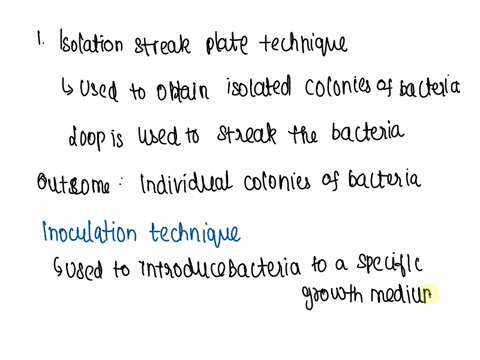 1. Isolation streak plate technique
↳ Used to obtain isolated colonies of bacteria
Loop is used to streak the bacteria
Outcome: Individual colonies of bacteria
Inoculation technique
↳ Used to introduce bacteria to a specific
growth medium